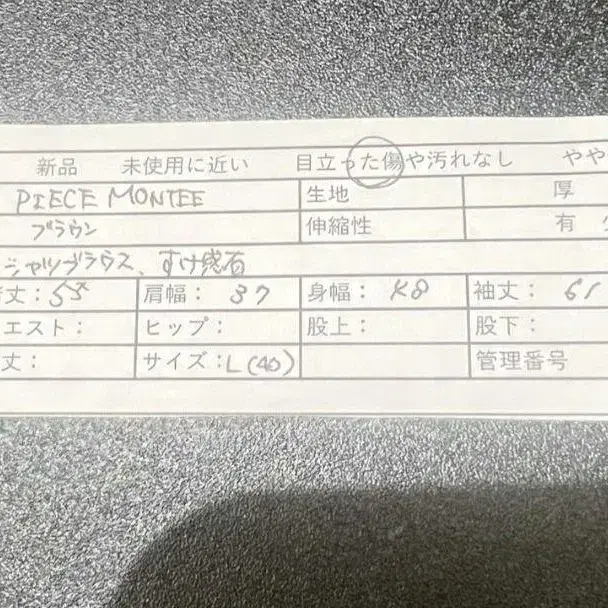 新品 未使用に近い 目立った傷や汚れなし やや
PIECE MONTEE 生地 厚
ブラウン 伸縮性 有
シャツブラウス、すけ感有
丈: 55 肩幅: 37 身幅: 48 袖丈: 61
エスト: ヒップ: 股上: 股下:
丈: サイズ: L(40) 管理番号